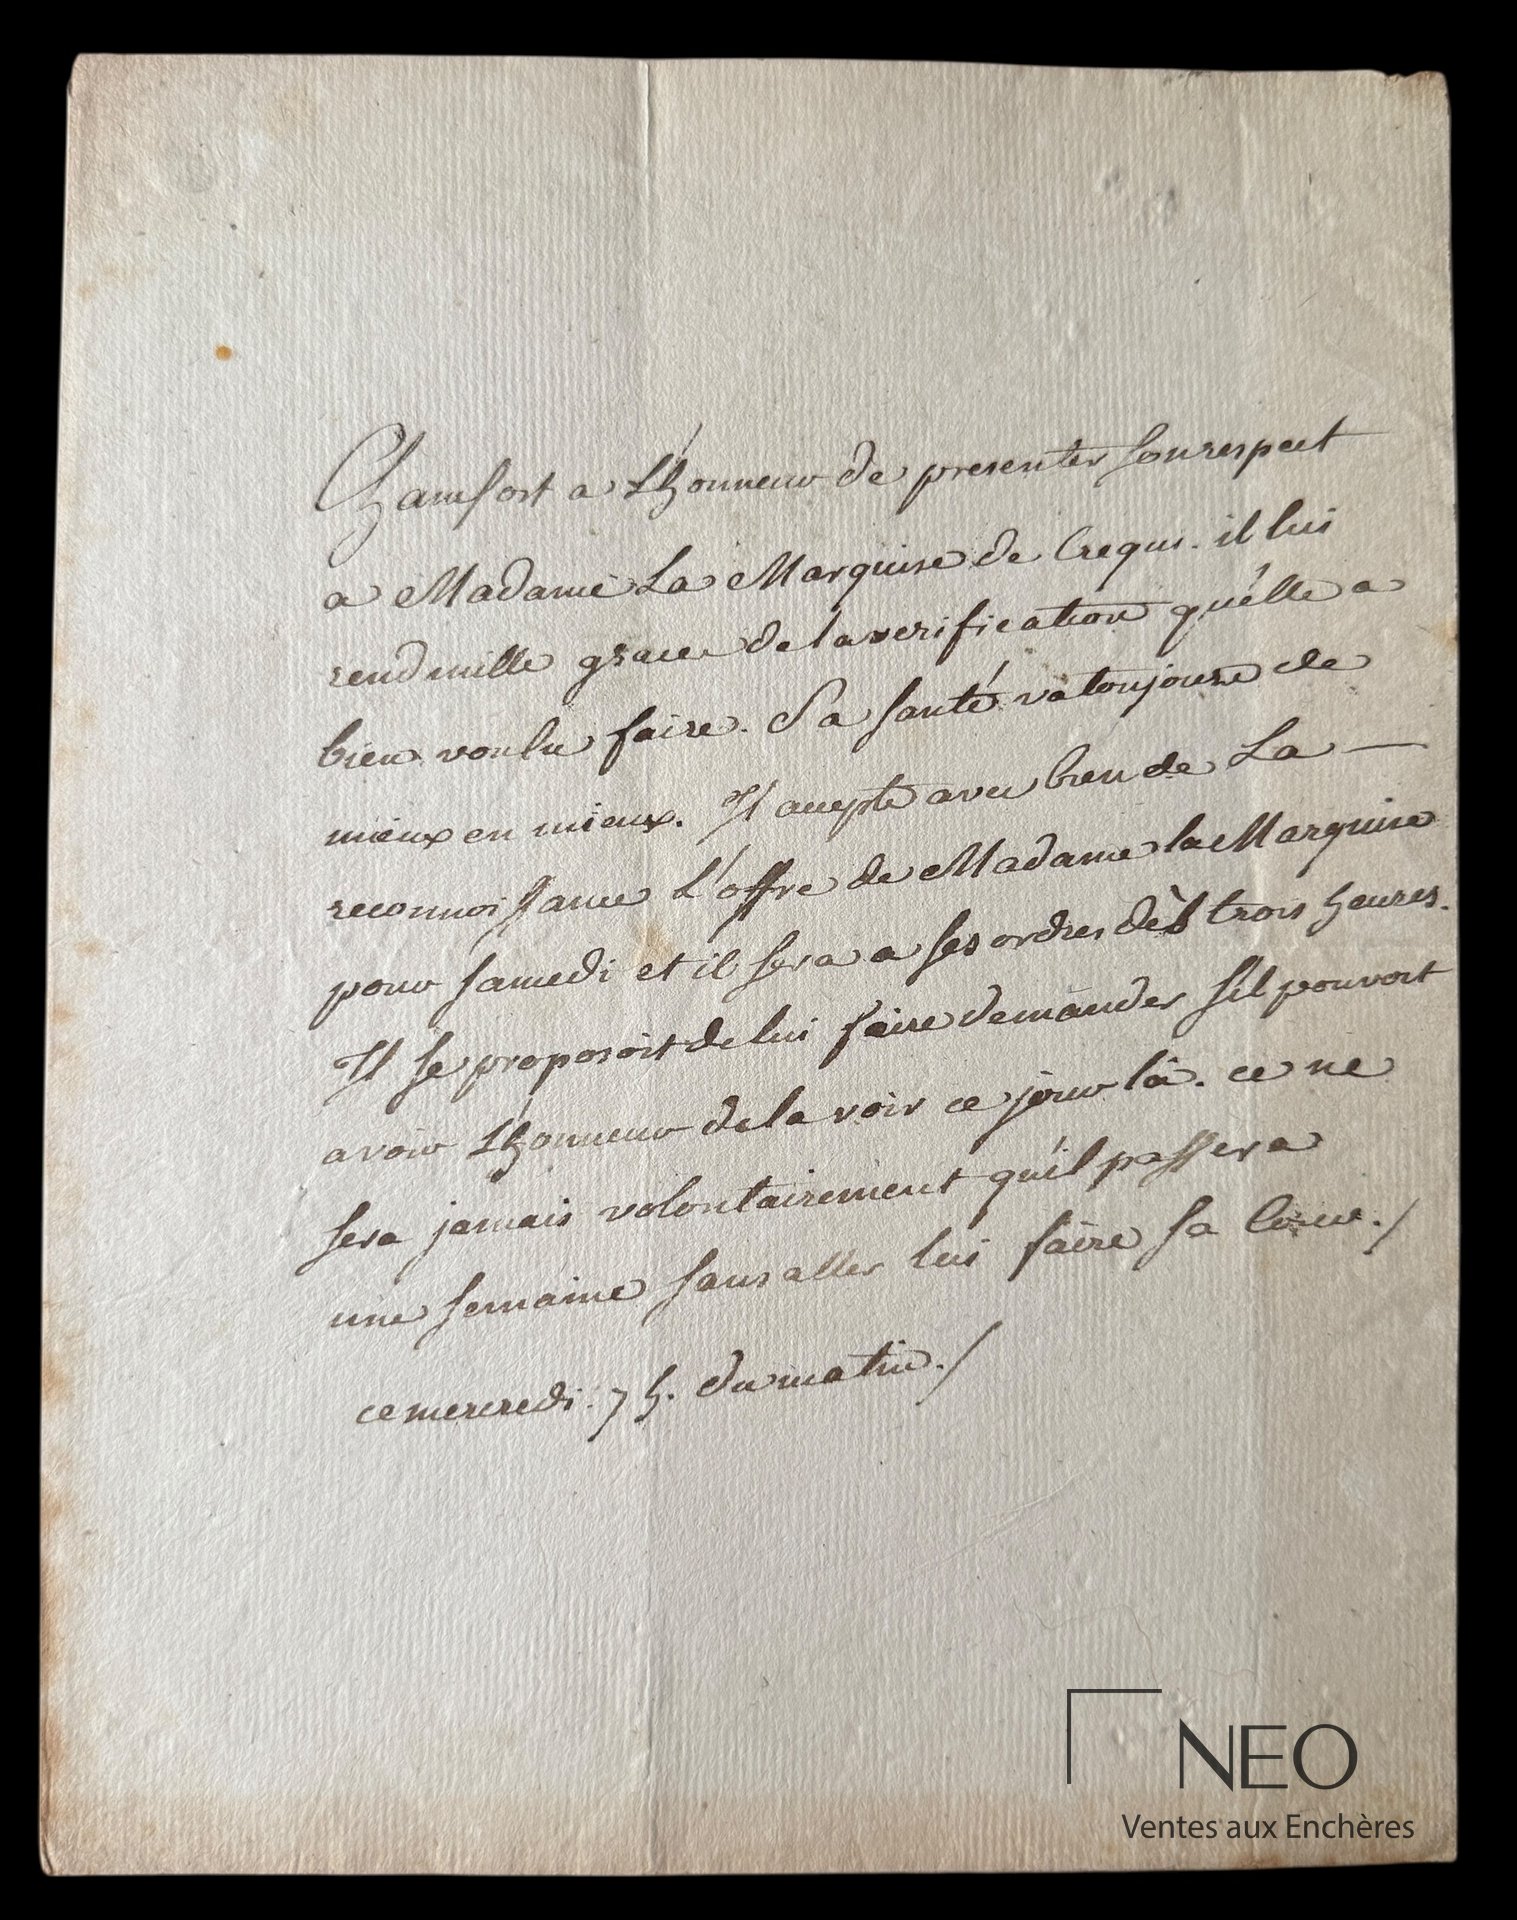 Chamfort a L'honneur de presenter son respect
a Madame La Marquise de Crequi. il lui
rend mille graces de la verification qu'elle a
bien voulu faire. Sa santé va toujours de
mieux en mieux. Il accepte avec bien de La —
reconnoissance L'offre de Madame la Marquise
pour samedi et il sera a ses ordres dès trois heures.
Il se proposoit de lui faire demander s'il pouvoit
avoir L'honneur de la voir ce jour là. ce ne
sera jamais volontairement qu'il passera
une semaine sans aller lui faire sa Cour./
ce mercredi. 7 h. du matin./
NEO
Ventes aux Enchères